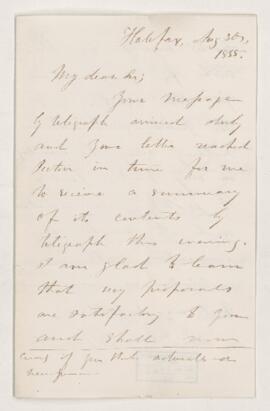 Halifax, Aug 30,
1855.
My dear Sir,
Your message
by telegraph arrived duly
and your letter reached
Pictou in time for me
to receive a summary
of its contents by
telegraph this evening.
I am glad to learn
that my proposals
are satisfactory to you
and shall now
of you